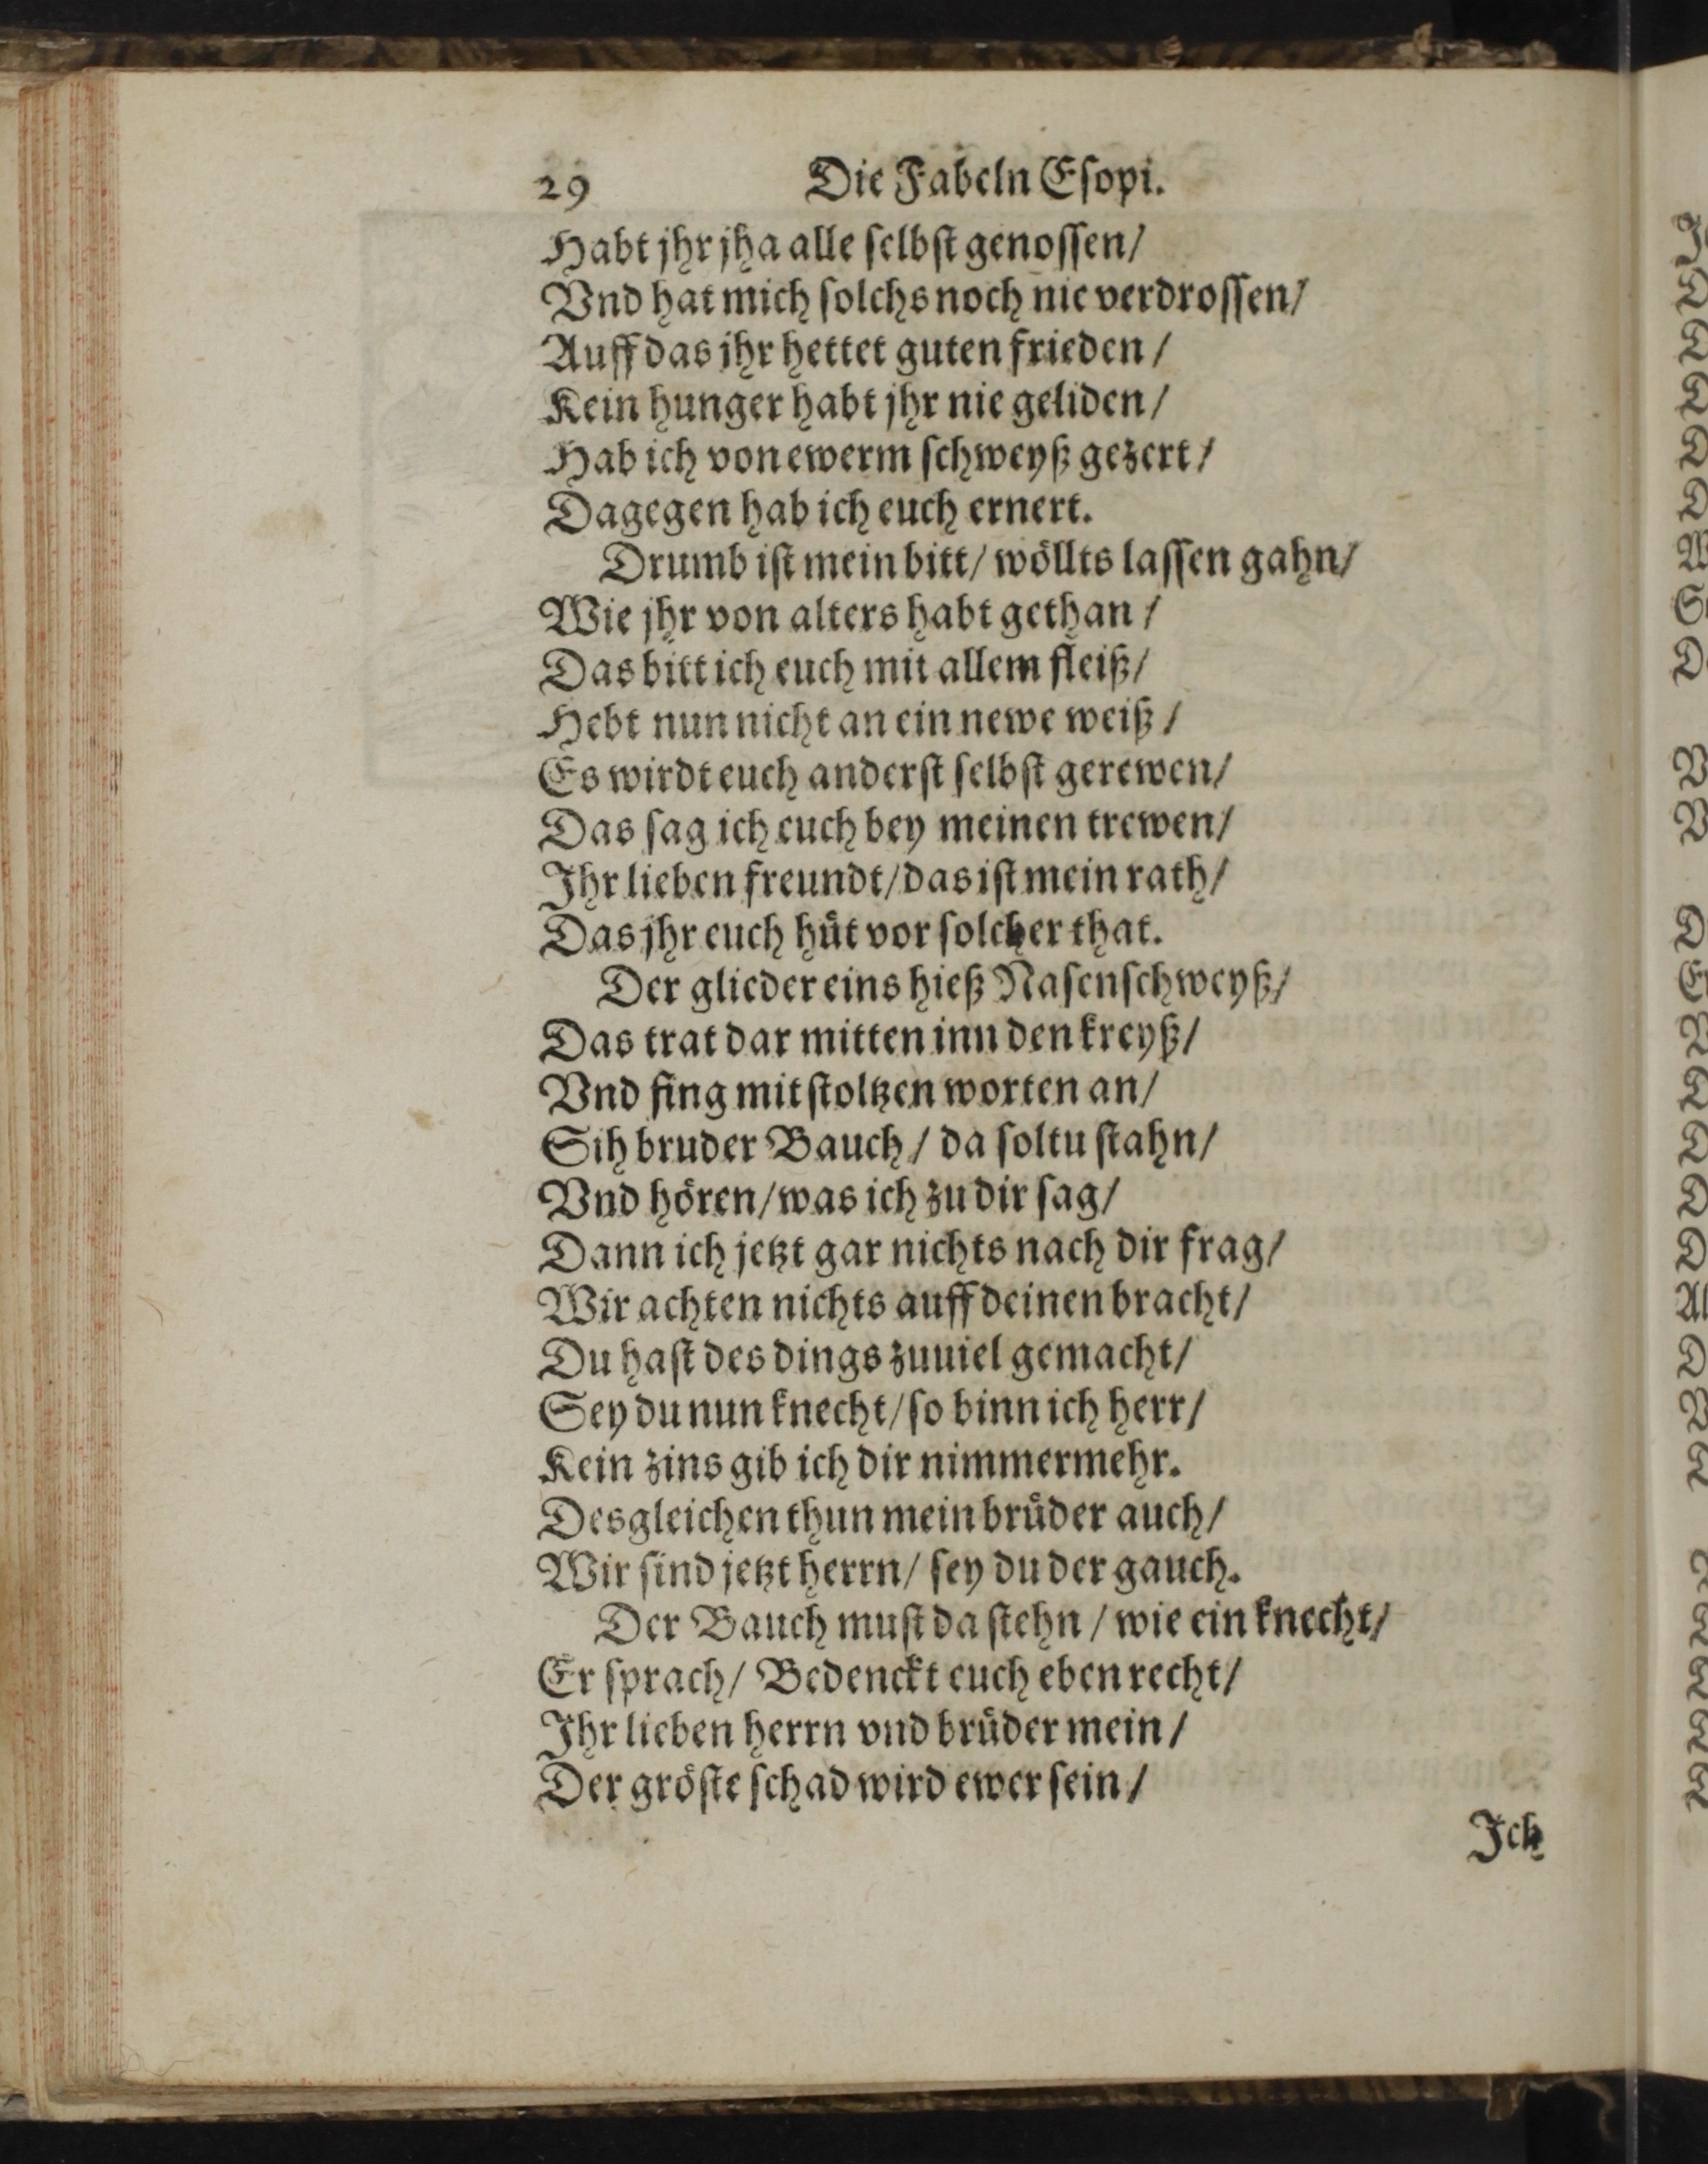 29 Die Fabeln Eſopi.
Habt jhr jha alle ſelbſt genoſſen/
Vnd hat mich ſolchs noch nie verdroſſen/
Auff das jhr hettet guten frieden /
Kein hunger habt jhr nie geliden /
Hab ich von ewerm ſchweyß gezert /
Dagegen hab ich euch ernert.
Drumb iſt mein bitt/ wöllts laſſen gahn/
Wie jhr von alters habt gethan /
Das bitt ich euch mit allem fleiß/
Hebt nun nicht an ein newe weiß /
Es wirdt euch anderſt ſelbſt gerewen/
Das ſag ich euch bey meinen trewen/
Ihr lieben freundt/ das iſt mein rath/
Das jhr euch hüt vor ſolcher that.
Der glieder eins hieß Naſenſchweyß/
Das trat dar mitten inn den kreyß/
Vnd fing mit ſtoltzen worten an/
Sih bruder Bauch / da ſoltu ſtahn/
Vnd hören/ was ich zu dir ſag/
Dann ich jetzt gar nichts nach dir frag/
Wir achten nichts auff deinen bracht/
Du haſt des dings zuuiel gemacht/
Sey du nun knecht/ ſo binn ich herr/
Kein zins gib ich dir nimmermehr.
Desgleichen thun mein brüder auch/
Wir ſind jetzt herrn/ ſey du der gauch.
Der Bauch muſt da ſtehn / wie ein knecht/
Er ſprach/ Bedenckt euch eben recht/
Ihr lieben herrn vnd brüder mein /
Der gröſte ſchad wird ewer ſein /
Ich